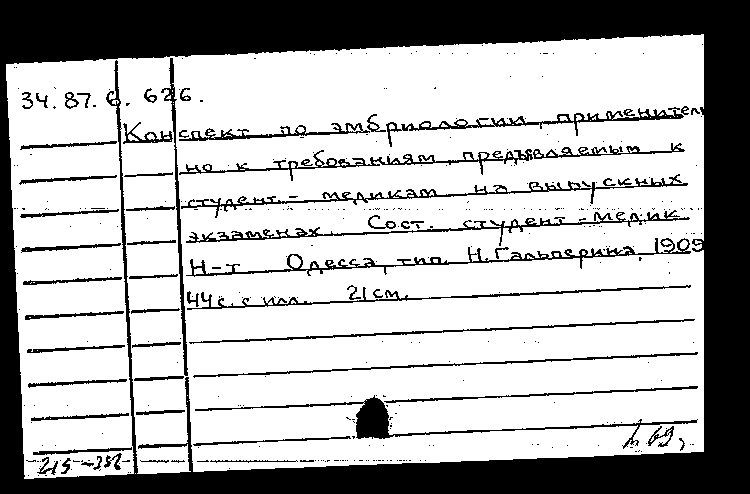 34. 87. 6. 626.
Конспект по эмбриологии, применитель
но к требованиям, предъявляемым к
студент- медикам на выпускных
экзаменах. Сост. студент-медик
Н-т Одесса, тип. Н. Гальперина, 1909
44 с. с илл. 21 см.